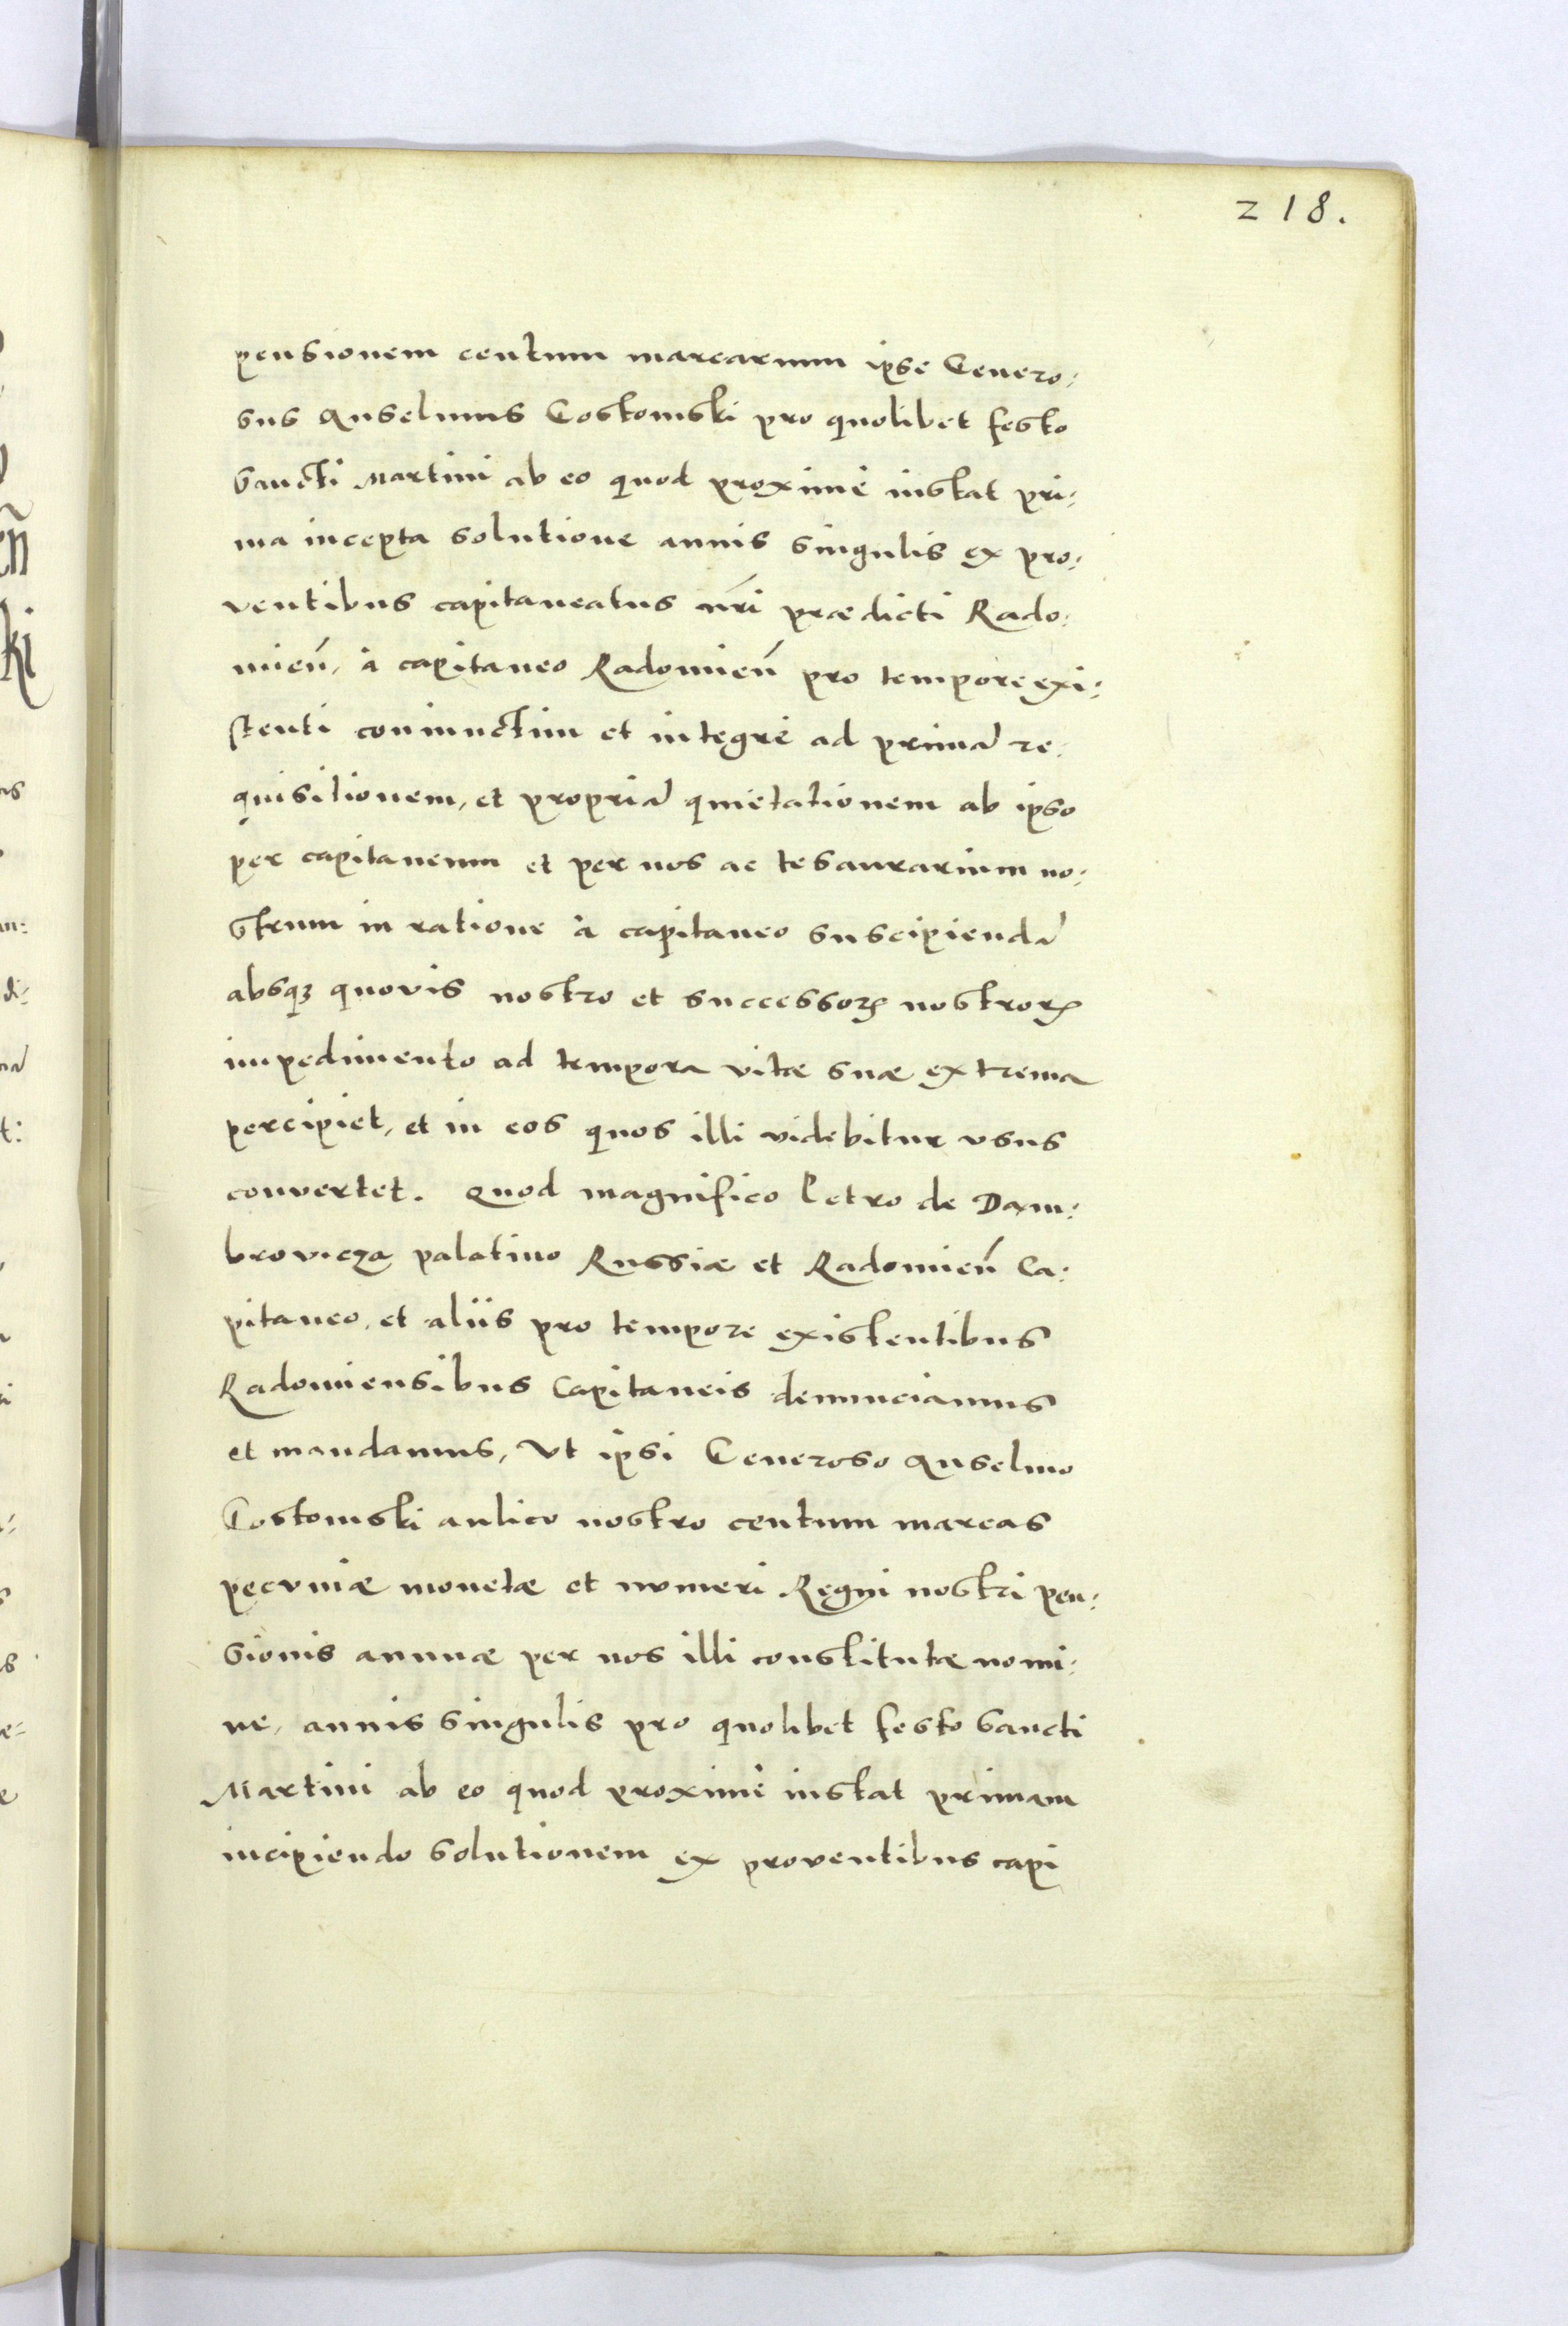 218.
pensionem centum marcarum ipse Genero:
sus Anselmus Gostomski pro quolibet festo
Sancti Martini ab eo quod proximè instat pri:
ma incepta solutione annis singulis ex pro:
ventibus capitaneatus nr̃i prædicti Rado:
mień, à capitaneo Radomień pro tempore exi:
stenti coniunctim et integrè ad primã re:
quisitionem, et propriã quietationem ab ipso
per capitaneum et per nos ac tesaurarium no:
strum in ratione à capitaneo suscipiendã
absqꝫ quovis nostro et successoꝝ nostroꝝ
impedimento ad tempora vitæ suæ extrema
percipiet, et in eos quos illi videbitur vsus
convertet. Quod magnifico Petro de Dam:
browicza palatino Russiæ et Radomień Ca:
pitaneo, et aliis pro tempore existentibus
Radomiensibus Capitaneis denunciamus
et mandamus, Vt ipsi Generoso Anselmo
Gostomski aulico nostro centum marcas
pecvniæ monetæ et nvmeri Regni nostri pen:
sionis annuæ per nos illi constitutæ nomi:
ne, annis singulis pro quolibet festo Sancti
Martini ab eo quod proximè instat primam
incipiendo solutionem ex proventibus capi